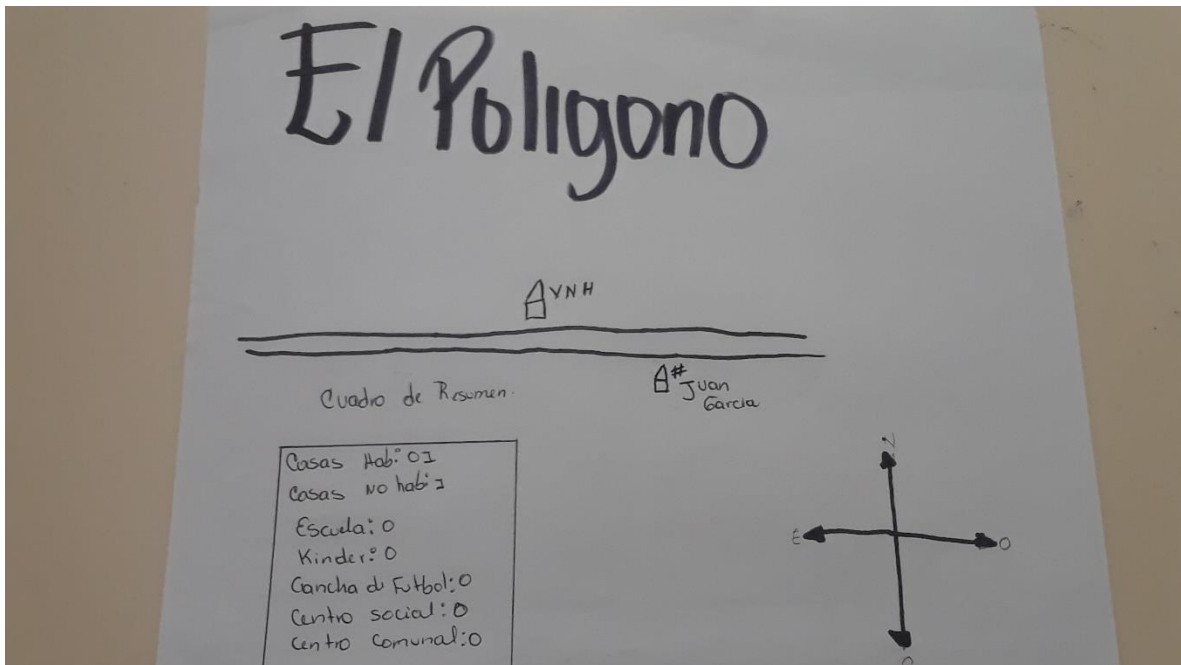 El Poligono
VNH
# Juan
Garcia
Cuadro de Resumen.
Casas Hab: 01
Casas No hab: 1
Escuela: 0
Kinder: 0
Cancha d Futbol: 0
Centro social: 0
Centro Comunal: 0
N
E
O